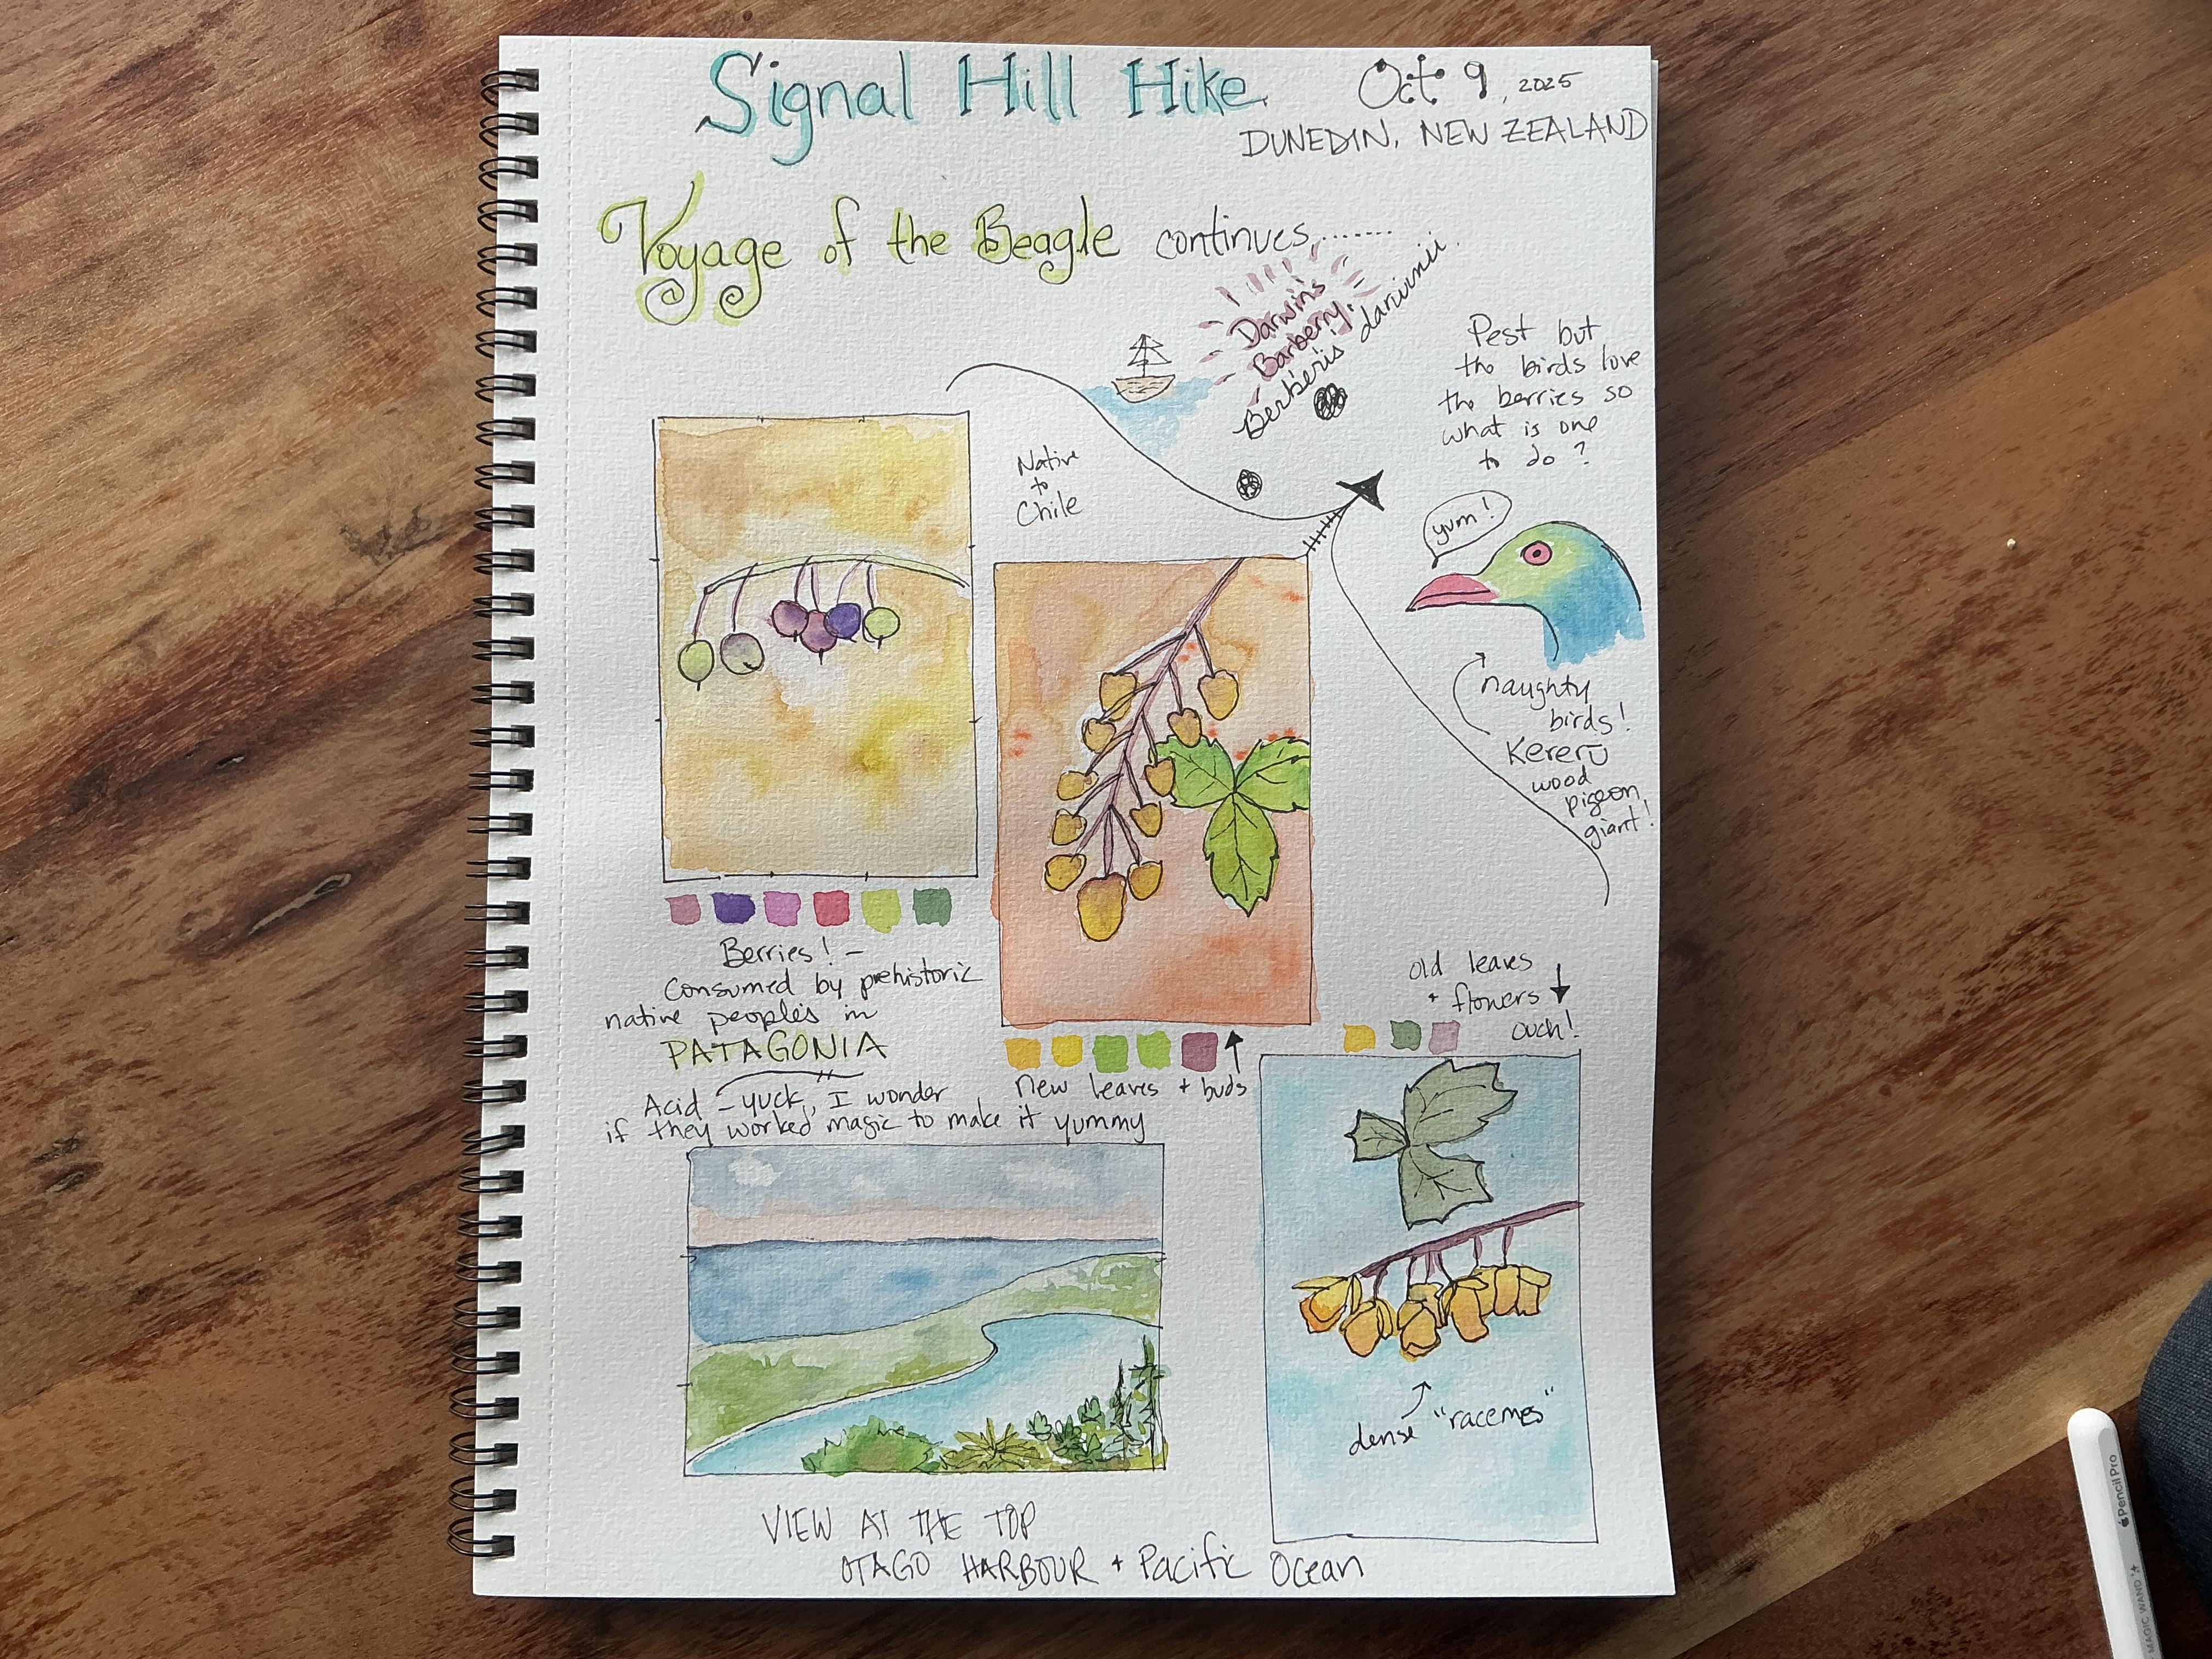 Signal Hill Hike
Oct 9, 2025
DUNEDIN, NEW ZEALAND
Voyage of the Beagle continues.......
Darwins
Barberry.
Berberis darwinii
Pest but
the birds love
the berries so
what is one
to do?
Native
to
Chile
yum!
naughty
birds!
Kererū
wood
pigeon
giant!
Berries! -
Consumed by prehistoric
native people's in
PATAGONIA
Acid - yuck, I wonder
if they worked magic to make it yummy
new leaves + buds
old leaves
+ flowers
ouch!
dense "racemes"
VIEW AT THE TOP
OTAGO HARBOUR + Pacific Ocean
Pencil Pro
MAGIC WAND